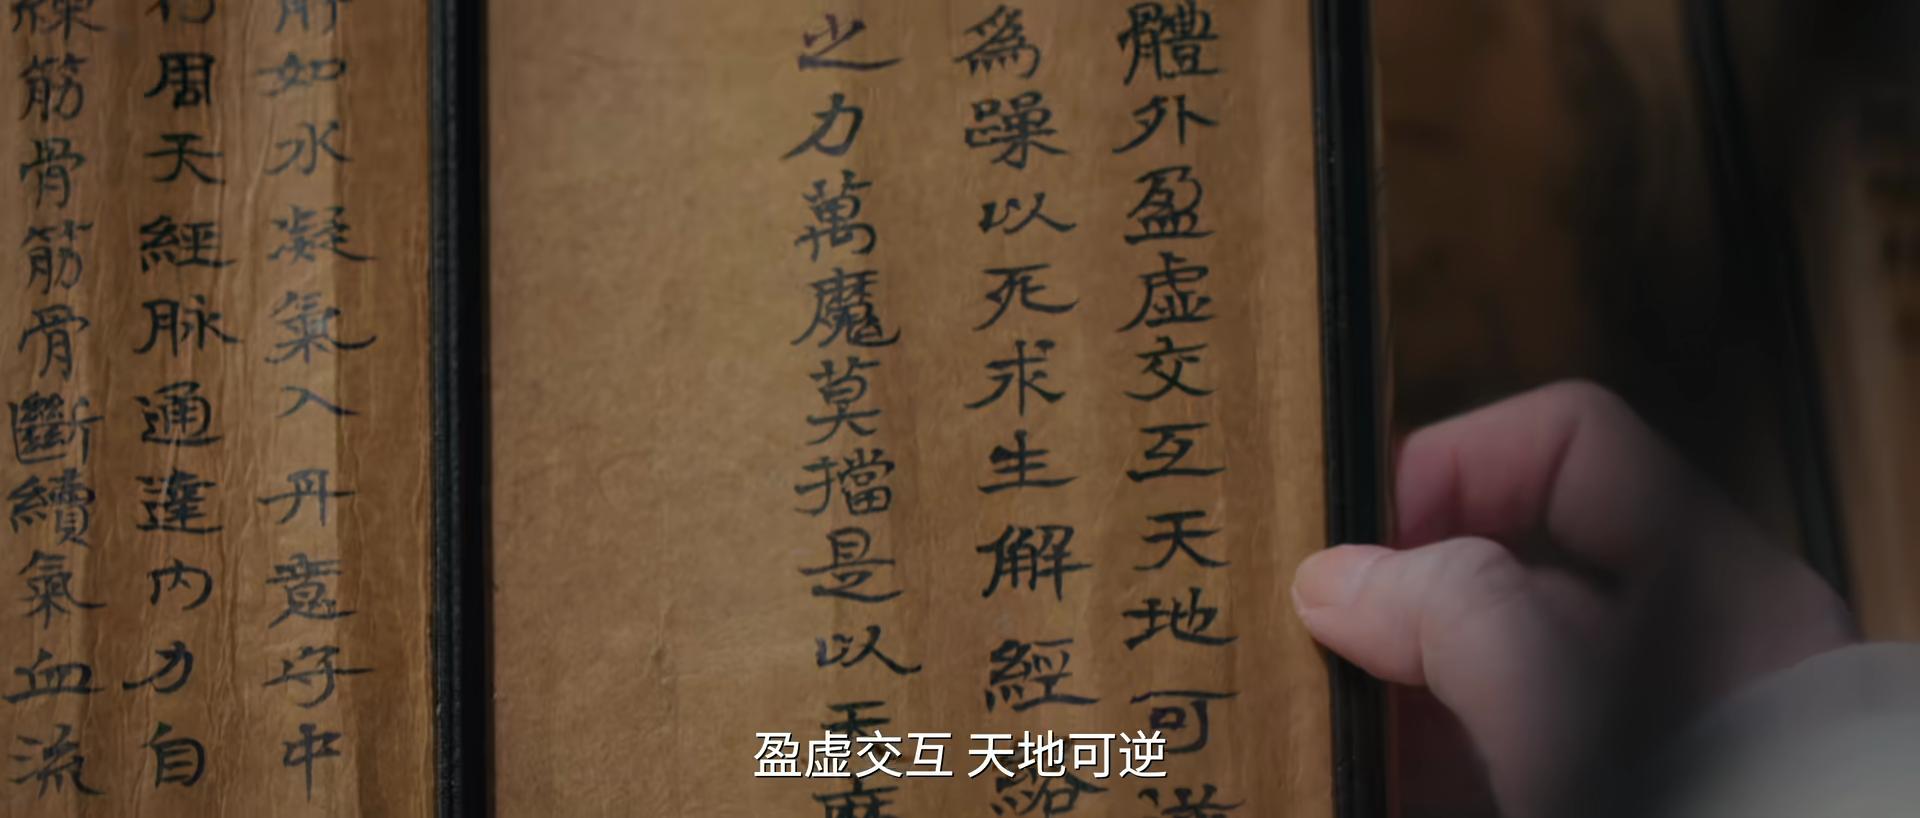 體外盈虛交互天地可逆
為躁以死求生解經絡
之力萬魔莫擋是以天魔
如水凝氣入丹意守中
周天經脉通達內力自
筋骨筋骨斷續氣血流
盈虚交互 天地可逆